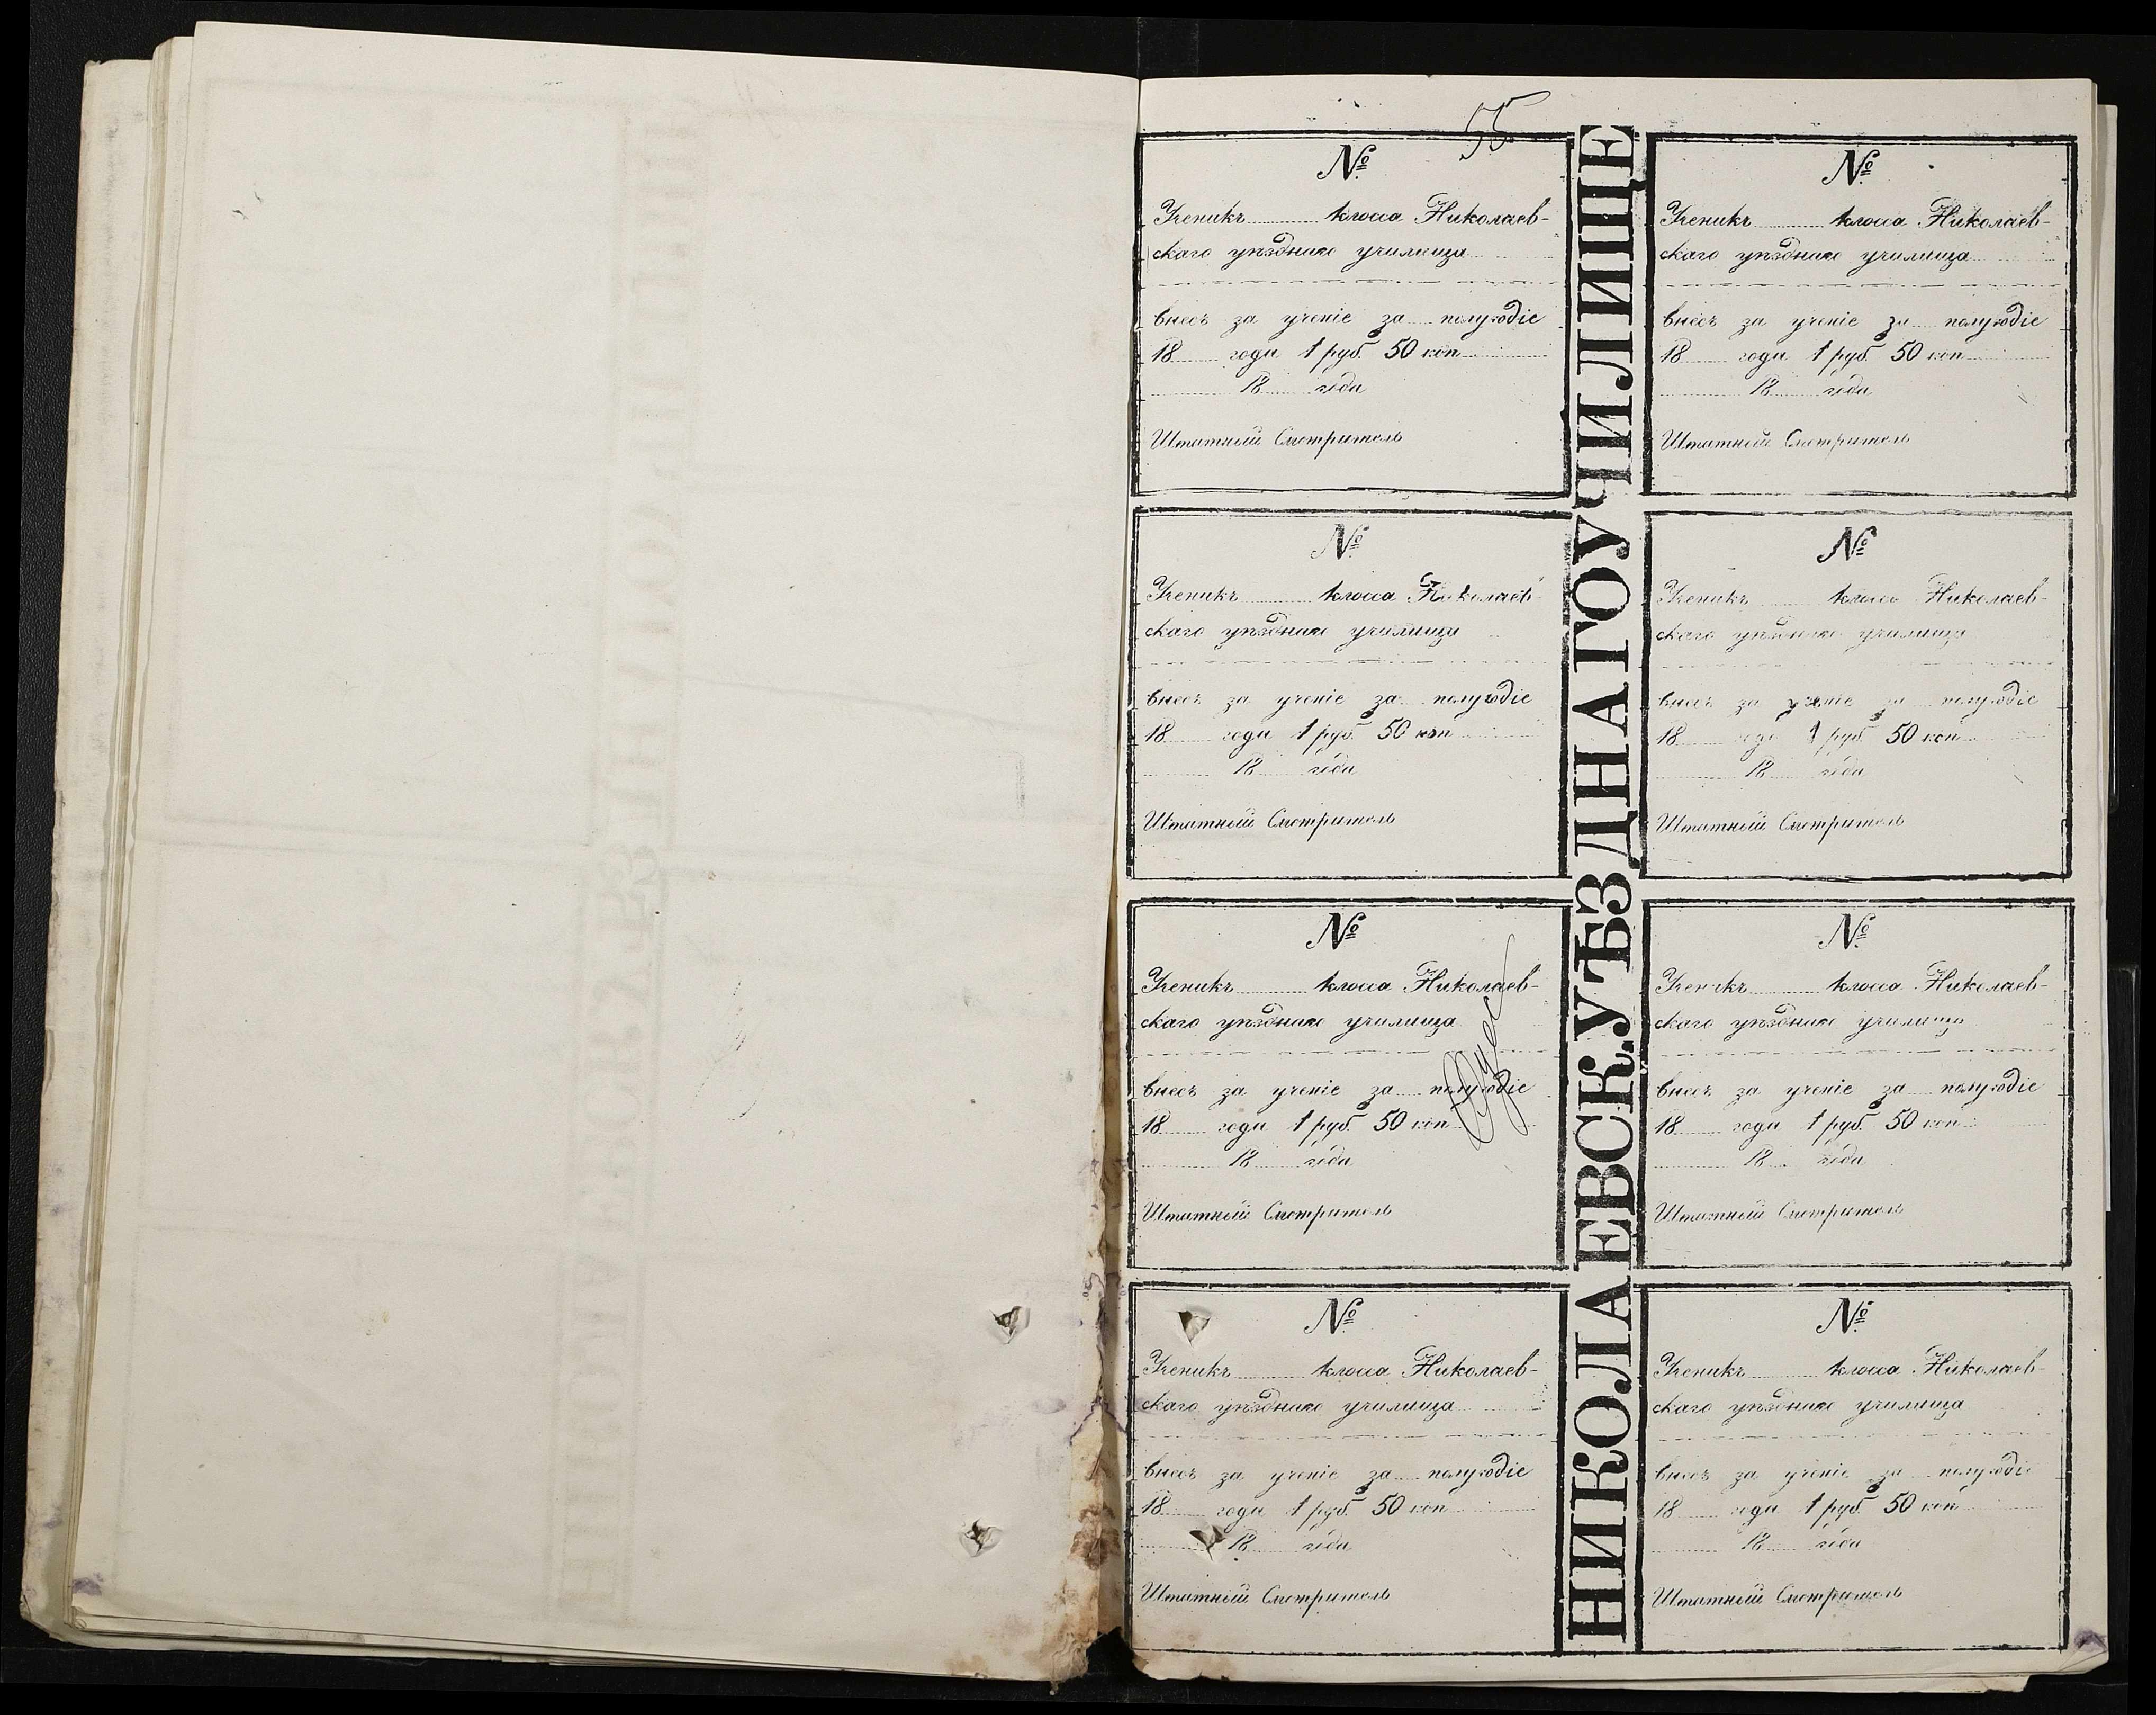 55
№
Ученикъ класса Николаев-
скаго уѣзднаго училища
внесъ за ученіе за полугодіе
18 года 1 руб. 50 коп
18 года
Штатный Смотритель
№
Ученикъ класса Николаев-
скаго уѣзднаго училища
внесъ за ученіе за полугодіе
18 года 1 руб. 50 коп
18 года
Штатный Смотритель
№
Ученикъ класса Николаев-
скаго уѣзднаго училища
внесъ за ученіе за полугодіе
18 года 1 руб. 50 коп
18 года
Штатный Смотритель
№
Ученикъ класса Николаев-
скаго уѣзднаго училища
внесъ за ученіе за полугодіе
18 года 1 руб. 50 коп
18 года
Штатный Смотритель
НИКОЛАЕВСК.УѢЗДНАГО УЧИЛИЩЕ
№
Ученикъ класса Николаев-
скаго уѣзднаго училища
внесъ за ученіе за полугодіе
18 года 1 руб. 50 коп
18 года
Штатный Смотритель
№
Ученикъ класса Николаев-
скаго уѣзднаго училища
внесъ за ученіе за полугодіе
18 года 1 руб. 50 коп
18 года
Штатный Смотритель
№
Ученикъ класса Николаев-
скаго уѣзднаго училища
внесъ за ученіе за полугодіе
18 года 1 руб. 50 коп
18 года
Штатный Смотритель
№
Ученикъ класса Николаев-
скаго уѣзднаго училища
внесъ за ученіе за полугодіе
18 года 1 руб. 50 коп
18 года
Штатный Смотритель